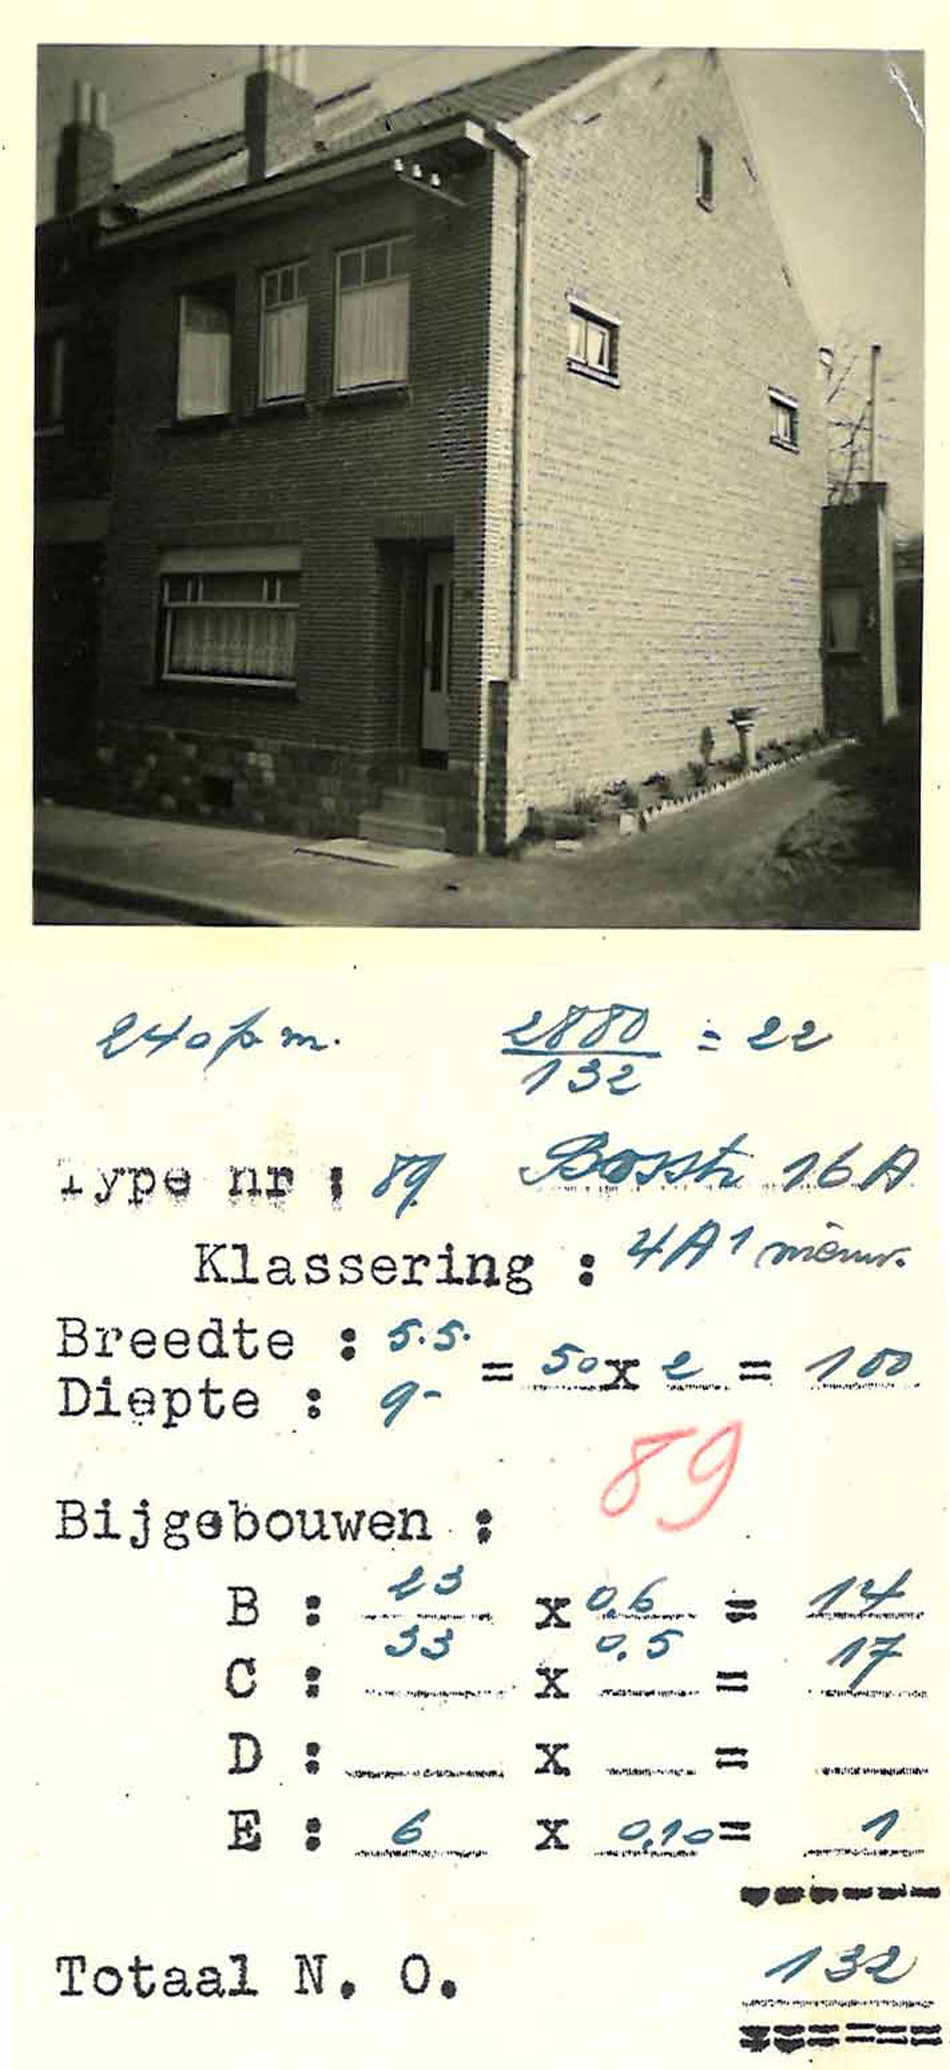 240 p.m. 2880 / 132 = 22
Type nr : 89 Bosstr 16 A
Klassering : 4A1 nieuw.
Breedte : 5.5.
= 50 x 2 = 100
Diepte : 9-
89
Bijgebouwen :
B : 23 x 0,6 = 14
C : 33 x 0.5 = 17
D : x =
E : 6 x 0,10 = 1
Totaal N. O. 132